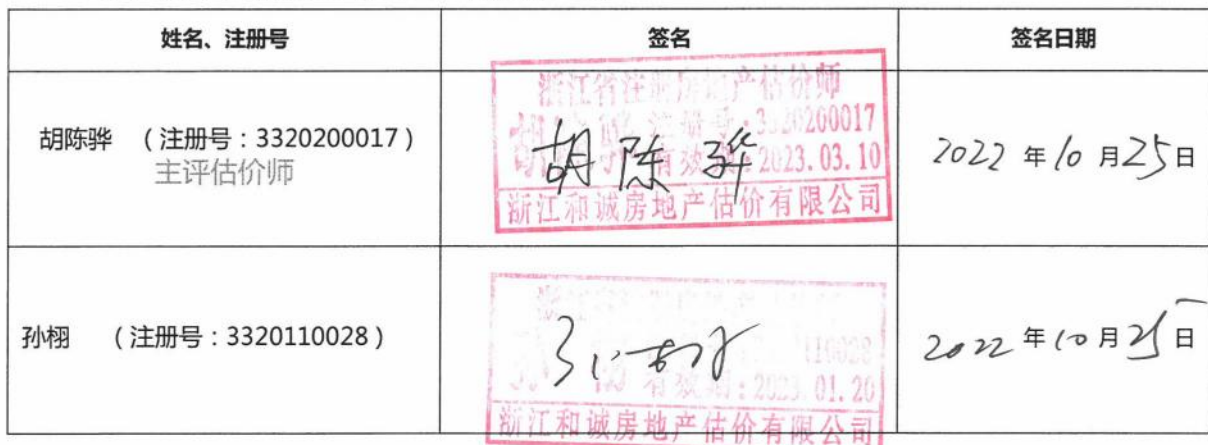 姓名、注册号
签名
签名日期
胡陈骅 （注册号：3320200017）
主评估价师
浙江省注册房地产估价师
注册号：3320200017
有效期：2023.03.10
浙江和诚房地产估价有限公司
胡陈骅
2022 年 10 月 25 日
孙栩 （注册号：3320110028）
110028
有效期：2023.01.20
浙江和诚房地产估价有限公司
2022 年 10 月 25 日